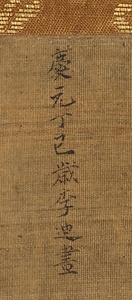 慶元丁巳歳李迪畫